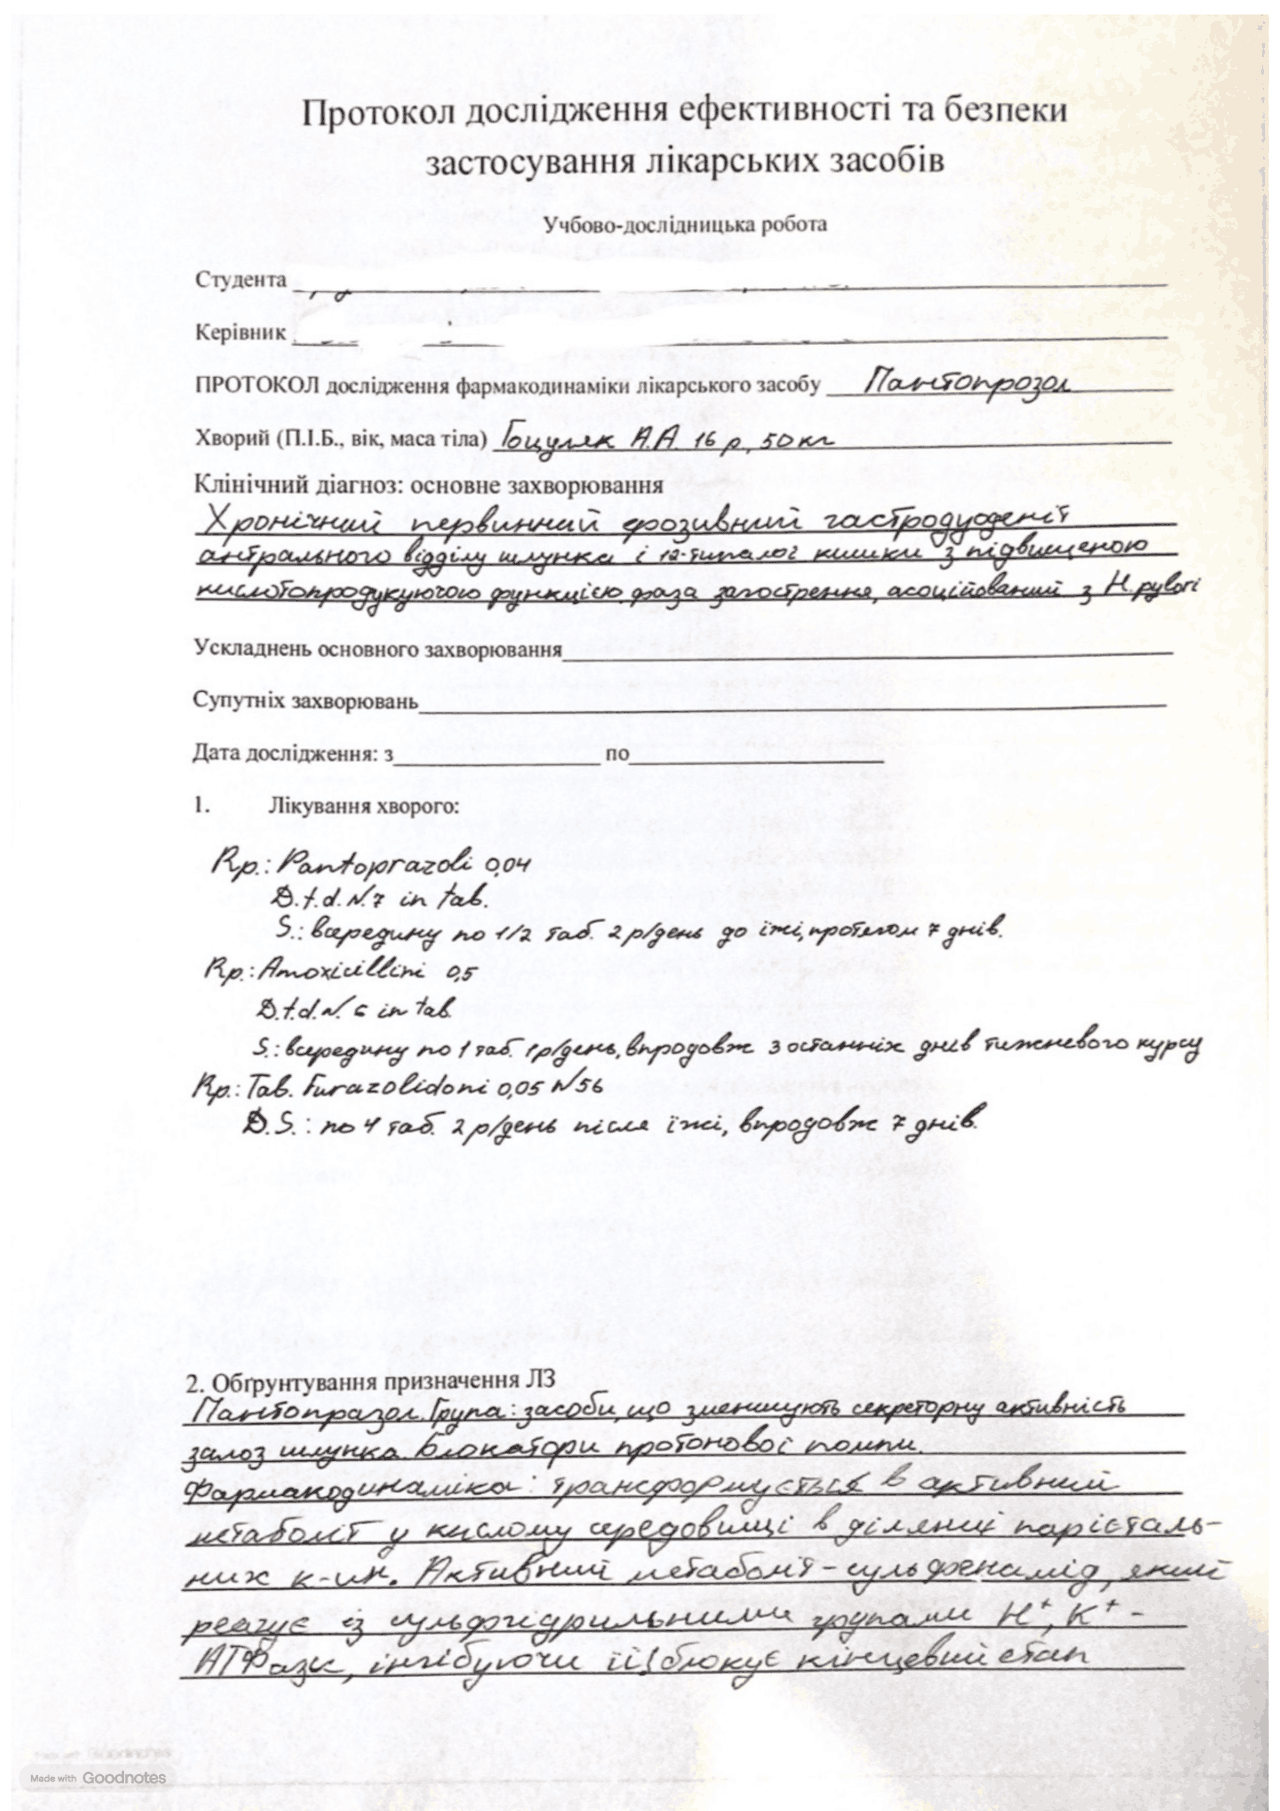 Протокол дослідження ефективності та безпеки
застосування лікарських засобів
Учбово-дослідницька робота
Студента
Керівник
ПРОТОКОЛ дослідження фармакодинаміки лікарського засобу Пантопрозол
Хворий (П.І.Б., вік, маса тіла) Гоцуляк А.А. 16 р, 50 кг
Клінічний діагноз: основне захворювання
Хронічний первинний ерозивний гастродуоденіт
антрального відділу шлунка і 12-типалої кишки з підвищеною
кислотопродукуючою функцією, фаза загострення, асоційований з H. pylori
Ускладнень основного захворювання
Супутніх захворювань
Дата дослідження: з по
1. Лікування хворого:
Rp.: Pantoprazoli 0,04
D.t.d. N. 7 in tab.
S.: всередину по 1/2 таб. 2 р/день до їжі, протягом 7 днів.
Rp.: Amoxicillini 0,5
D.t.d. N. 6 in tab.
S.: всередину по 1 таб. 1 р/день, впродовж 3 останніх днів тижневого курсу
Rp.: Tab. Furazolidoni 0,05 N 56
D.S.: по 4 таб. 2 р/день після їжі, впродовж 7 днів.
2. Обґрунтування призначення ЛЗ
Пантопразол. Група: засоби, що зменшують секреторну активність
залоз шлунка. Блокатори протонової помпи.
Фармакодинаміка: трансформується в активний
метаболіт у кислому середовищі в ділянці парієталь-
них к-ин. Активний метаболіт - сульфенамід, який
реагує із сульфгідрильними групами H⁺, K⁺ -
АТФази, інгібуючи її і блокує кінцевий етап
Made with Goodnotes